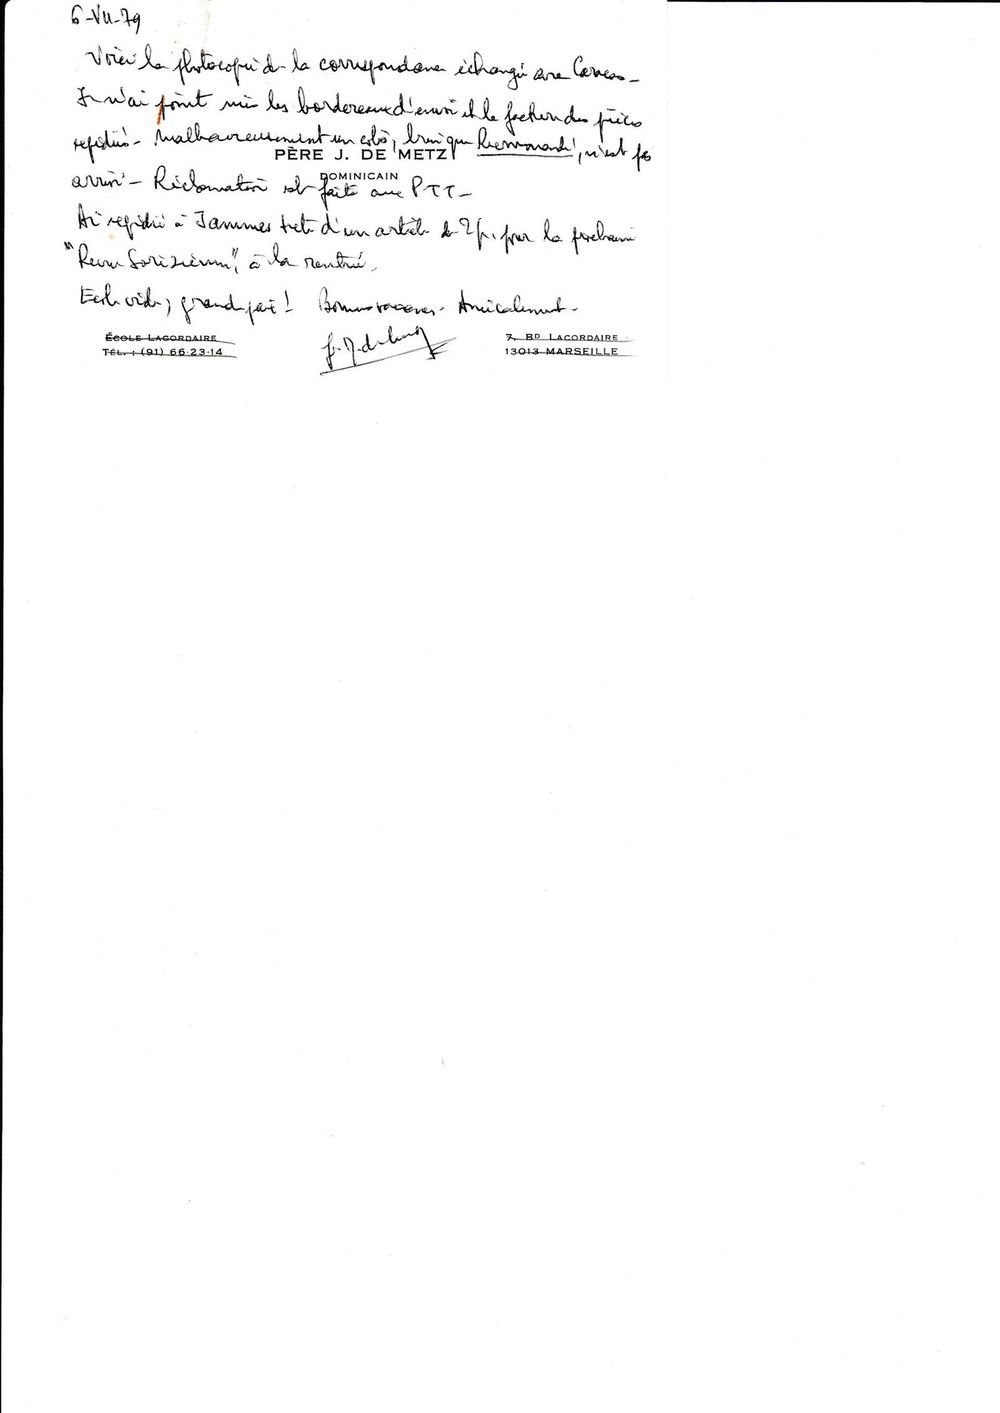 6-VII-79
Voici la photocopie de la correspondance échangée avec Caveas -
Je n'ai point mis les bordereaux d'envoi et la facture des pièces
expédiées - Malheureusement un colis, bien que Recommandé, n'est pas
PÈRE J. DE METZ
DOMINICAIN
arrivé - Réclamation est faite aux PTT -
Ai expédié à Jammes texte d'un article de 2 p. pour la prochaine
"Revue Sorézienne", à la rentrée.
Ecole vide, grande paix! Bonnes vacances - Amicalement -
ÉCOLE LACORDAIRE
TÉL. : (91) 66-23-14
fr. J. de Metz
7, BD LACORDAIRE
13013 MARSEILLE